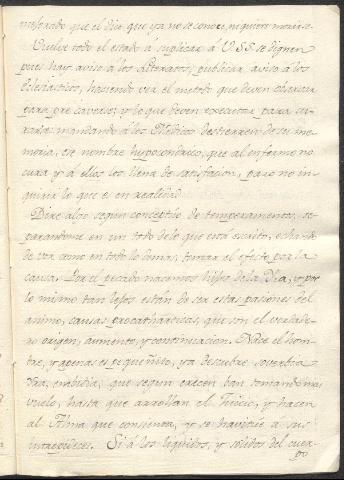 mejorado que el dice que ya no se conoce, ni quiere morirse.
Vuelve todo el estado á suplicar á V.SS. se dignen
pues hay aviso á los Literatos, publicar aviso á los
Eclesiasticos, haciendo ver el metodo que deven observar
para precaverse; y lo que deven executar para cu-
rarse: mandando á los Medicos destierren de su me-
moria, ese nombre hypocondrico, que al enfermo no
cura, y á ellos los llena de satisfacion, para no in-
quirir lo que es en realidad.
Dire algo segun conceptuo de temperamento, se-
parandome en un todo de lo que está escrito, echando
de ver como en todo lo demas, tomar el efecto por la
causa. Por el pecado nacemos hijos de la Yra, y por
lo mismo tan lejos están de ser estas pasiones del
animo, causas procatharticas, que son el verdade-
ro origen, aumento, y continuacion. Nace el hom-
bre, y apenas es pequeñito, ya descubre sovervia
Yra, embidia, que segun crecen van tomando mas
vuelo, hasta que arrollan el Juicio, y hacen
al Alma que consienta, y se havitúe á sus
intrepideces. Si á los liquidos, y solidos del cuer-
po